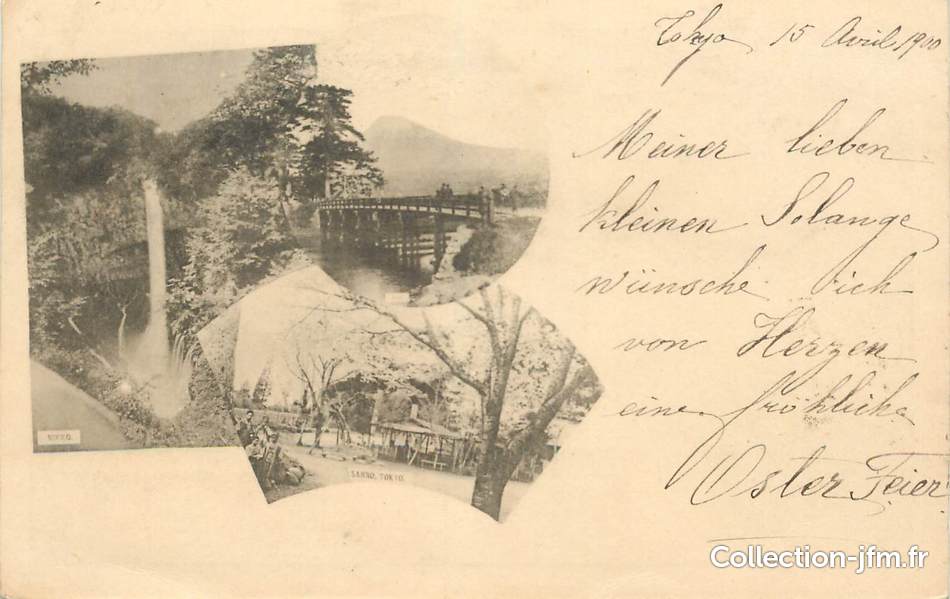 Tokyo 15 Avril 1900
Meiner lieben
kleinen Solange
wünsche ich
von Herzen
eine fröhliche
Oster Feier
NIKKO.
SANNO, TOKYO.
Collection-jfm.fr